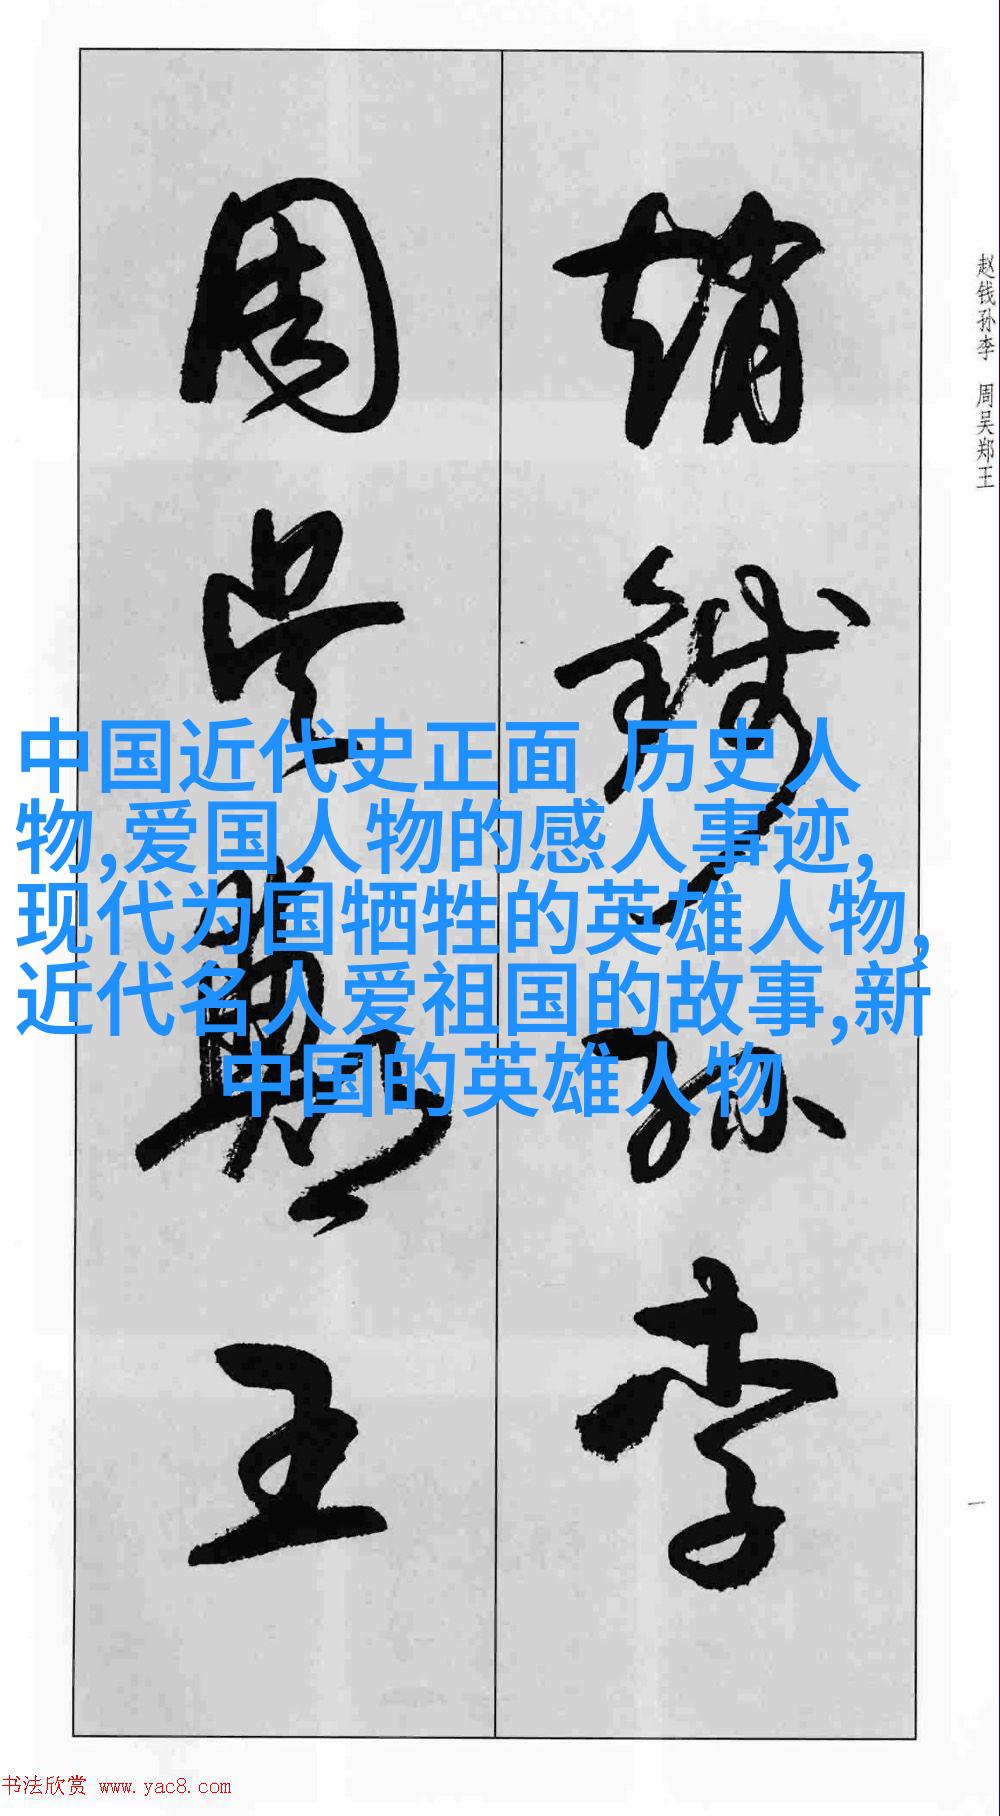 趙錢孫李
周吳鄭王
赵钱孙李 周吴郑王
中国近代史正面 历史人
物,爱国人物的感人事迹,
现代为国牺牲的英雄人物,
近代名人爱祖国的故事,新
中国的英雄人物
一
书法欣赏 www.yac8.com